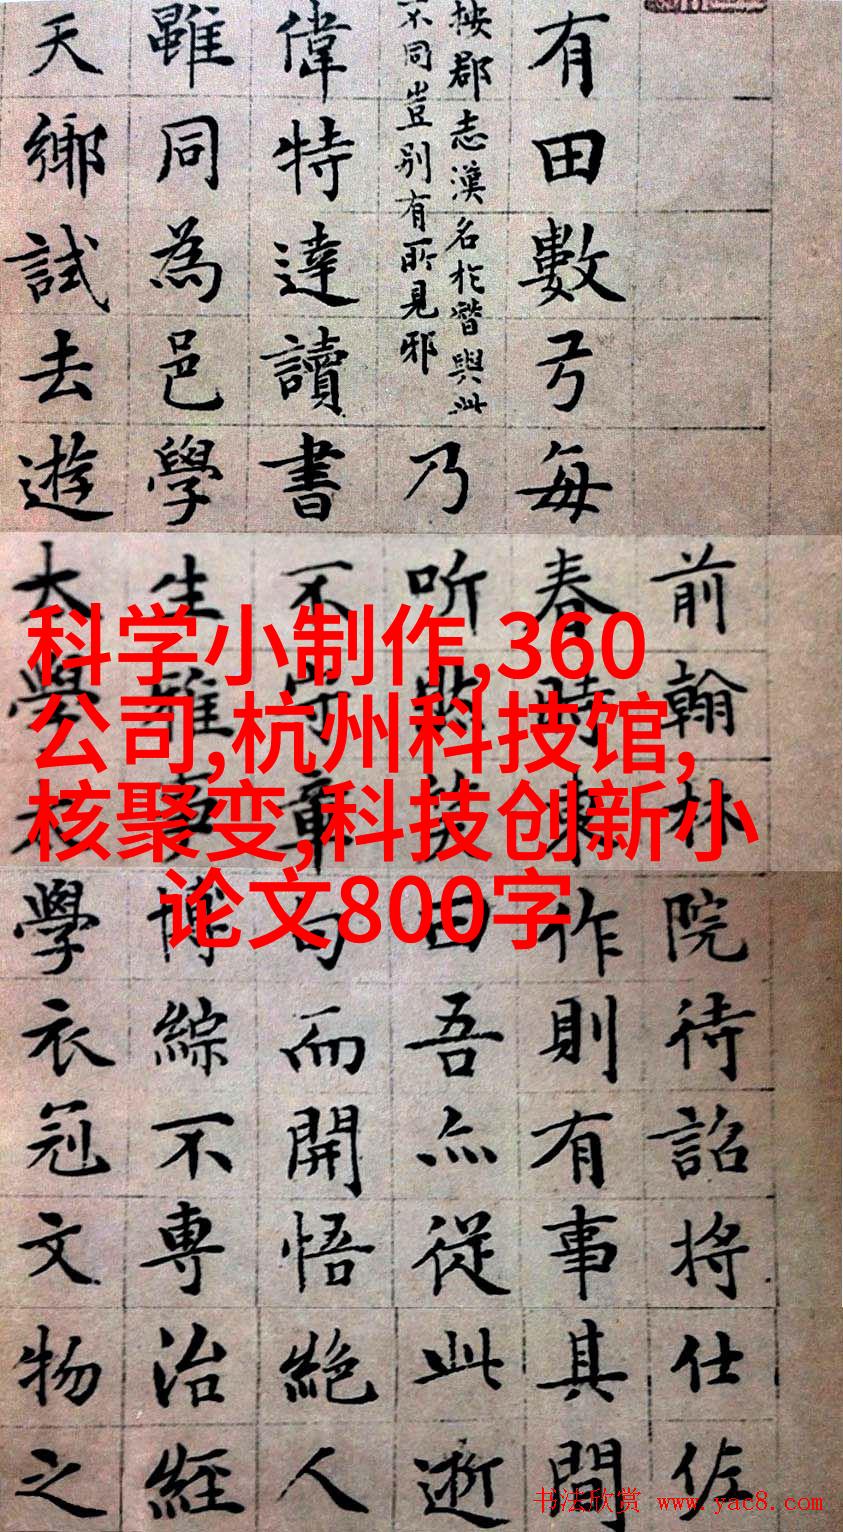 前翰林院待詔将仕佐
有田數亏每春時東作則有事其間
按郡志漢名扵與此
不同豈别有所見邪
乃听然笑曰吾亦從此逝
偉特達讀書不守章句而開悟絕人
雖同為邑學生雅事博綜不専治經
天鄉試去遊太學太學衣冠文物之
科学小制作,360
公司,杭州科技馆,
核聚变,科技创新小
论文800字
书法欣赏 www.yac8.com